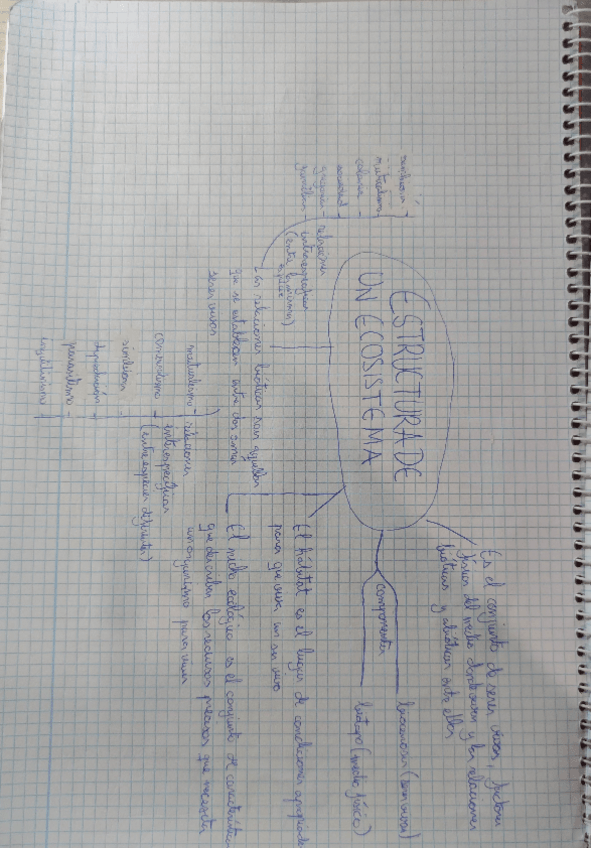 ESTRUCTURA DE
UN ECOSISTEMA
Es el conjunto de seres vivos, factores
físicos del medio donde viven y las relaciones
bióticas y abióticas entre ellos
componentes
biocenosis (seres vivos)
biotopo (medio físico)
El hábitat es el lugar de condiciones apropiadas
para que viva un ser vivo
El nicho ecológico es el conjunto de características
que describen los recursos precisos que necesita
un organismo para vivir
Las relaciones bióticas son aquellas
que se establecen entre dos
seres vivos
relaciones
intraespecíficas
(entre la misma
especie)
competición
colonia
sociedad
gregaria
familiar
relaciones
interespecíficas
(entre especies diferentes)
mutualismo
comensalismo
simbiosis
depredación
parasitismo
inquilinismo